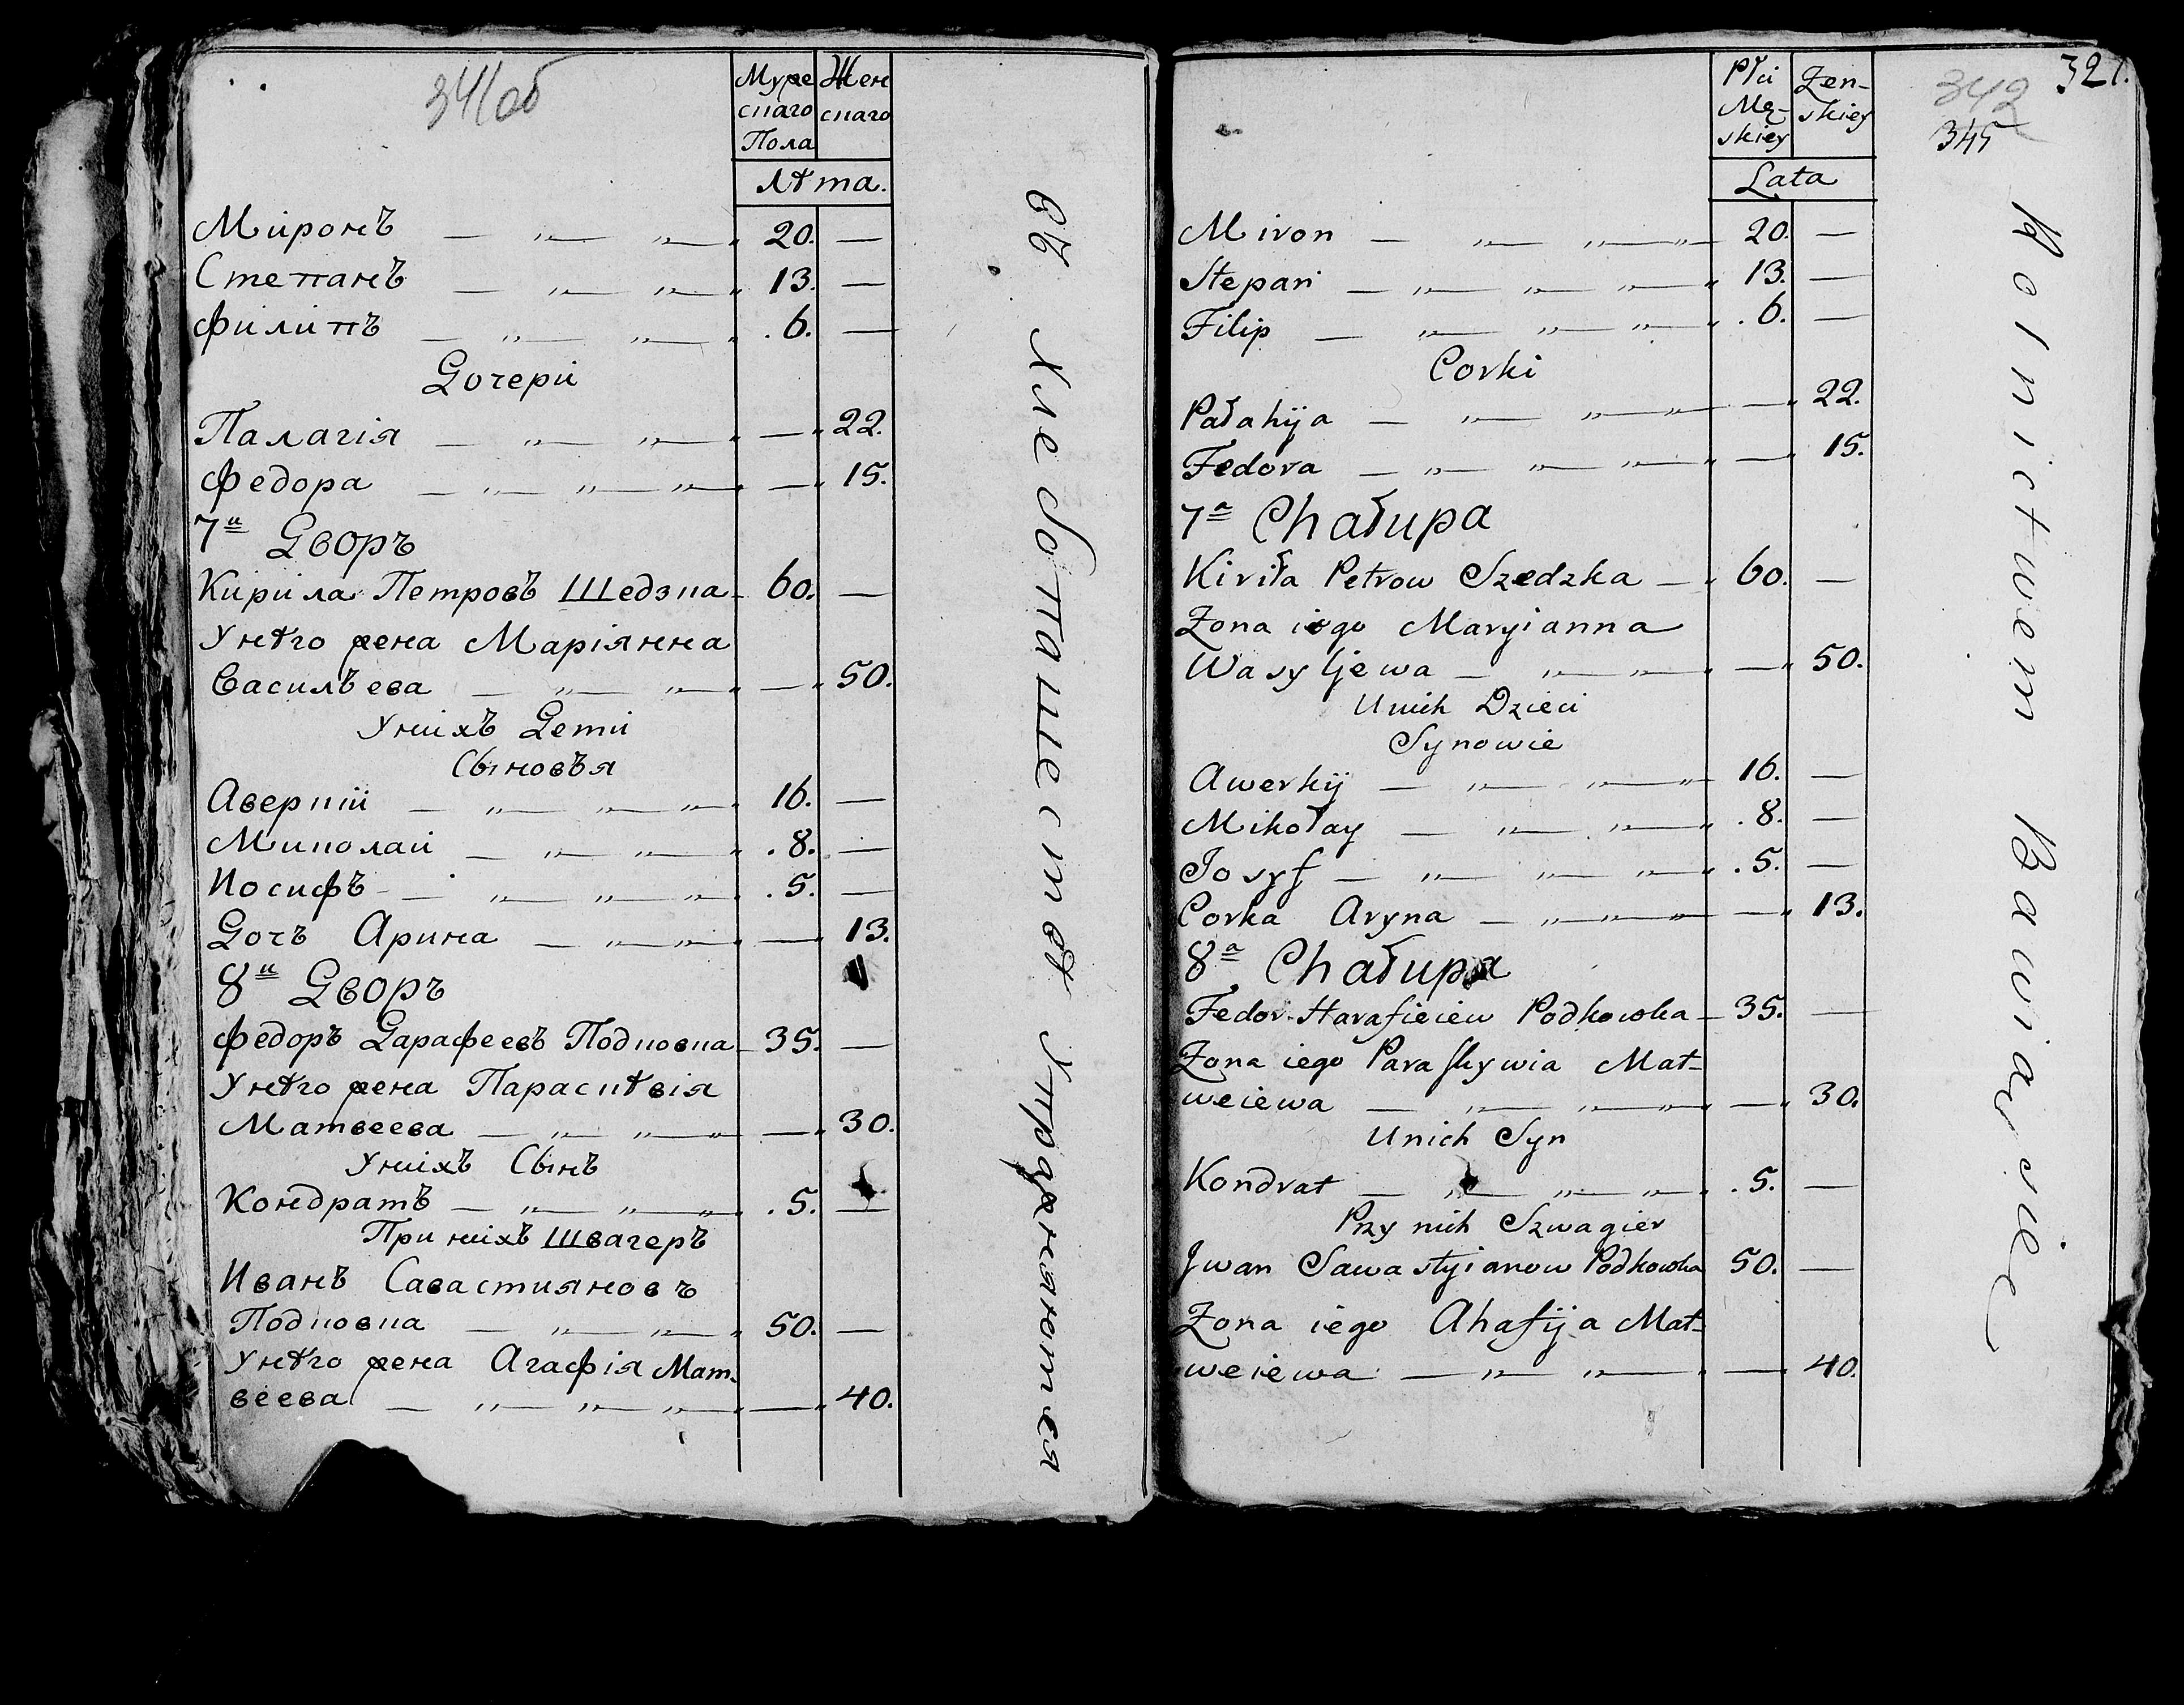 341об
Мужескаго Пола
Женскаго
Лѣта.
Миронъ — „ — „ — „ 20. —
Степанъ — „ — „ — „ 13. —
Филипъ — „ — „ — „ .6. —
Дочери
Палагія — „ — „ — „ — „ 22.
Федора — „ — „ — „ — „ — „ 15.
7й Дворъ
Кирила Петровъ Шедзка 60. —
У нѣго жена Маріянна
Васильева — „ — „ — „ — „ 50.
У нихъ Дети
Сыновья
Аверкій — „ — „ — „ — „ 16. —
Миколай — „ — „ — „ .8. —
Иосифъ — „ — „ — „ — .5. —
Дочь Арина — „ — „ — „ — „ 13.
8й Дворъ
Федоръ Гарафеевъ Подковка 35. —
У нѣго жена Параскѣвія
Матвеева — „ — „ — „ — „ 30.
У нихъ Сынъ
Кондратъ — „ — „ — „ — .5. —
При нихъ Швагеръ
Иванъ Савастияновъ
Подковка — „ — „ — „ 50. —
У нѣго жена Агафія Мат-
веева — „ — „ — „ — „ — „ 40.
Съ Хлебопашествѣ Упражняются
327.
342
345
Płci Męskiey
Żenskiey
Lata
Miron — „ — „ — „ — 20. —
Stepan — „ — „ — „ — „ 13. —
Filip — „ — „ — „ — „ .6. —
Corki
Pałahija — „ — „ — „ — — „ 22.
Fedora — „ — „ — „ — „ — „ 15.
7a Chałupa
Kiriła Petrow Szedzka — „ 60. —
Żona iego Maryianna
Wasyljewa — „ — „ — „ — „ 50.
U nich Dzieci
Synowie
Awerkij — „ — „ — „ — 16. —
Mikołay — „ — „ — „ .8. —
Josyf — „ — „ — „ — „ .5. —
Corka Aryna — „ — „ — „ — — „ 13.
8a Chałupa
Fedor Harafieiew Podkowka 35. —
Żona iego Paraskywia Mat-
weiewa — „ — „ — „ — „ — „ 30.
U nich Syn
Kondrat — „ — „ — „ — „ .5. —
Przy nich Szwagier
Jwan Sawastyianow Podkowka 50. —
Żona iego Ahafija Mat-
weiewa — „ — „ — „ — „ 40.
Rolnictwem Bawią się